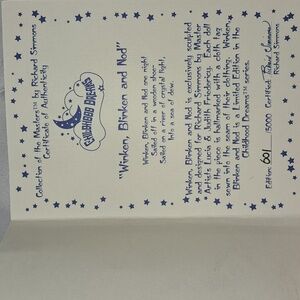 Collection of the Masters™ by Richard Simmons
Certificate of Authenticity
CHILDHOOD DREAMS
"Winken, Blinken and Nod"
Winken, Blinken and Nod one night
Sailed off in a wooden shoe-
Sailed on a river of crystal light,
Into a sea of dew.
Winken, Blinken and Nod is exclusively sculpted
and designed for Richard Simmons by Master
Artists Lucia & Judith Friedericy. Each doll
in the piece is hallmarked with a cloth tag
sewn into the seam of their clothing. Winken,
Blinken and Nod is a Limited Edition in the
Childhood Dreams™ series.
Edition: 601 / 5000 Certified: Richard Simmons
Richard Simmons